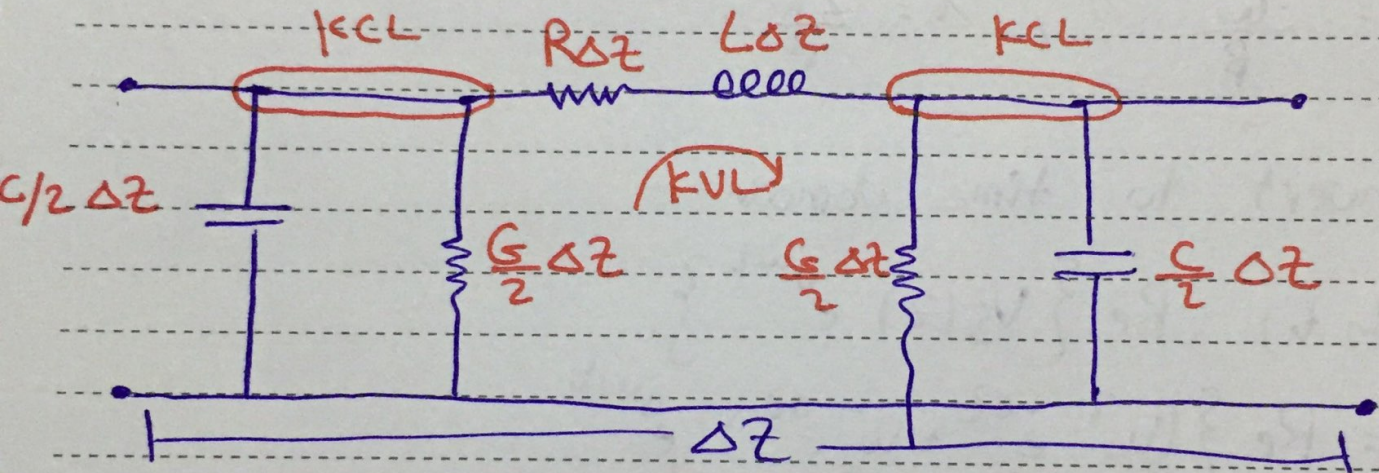 KCL
RΔZ
LΔZ
KCL
C/2 ΔZ
KVL
G/2 ΔZ
G/2 ΔZ
C/2 ΔZ
ΔZ